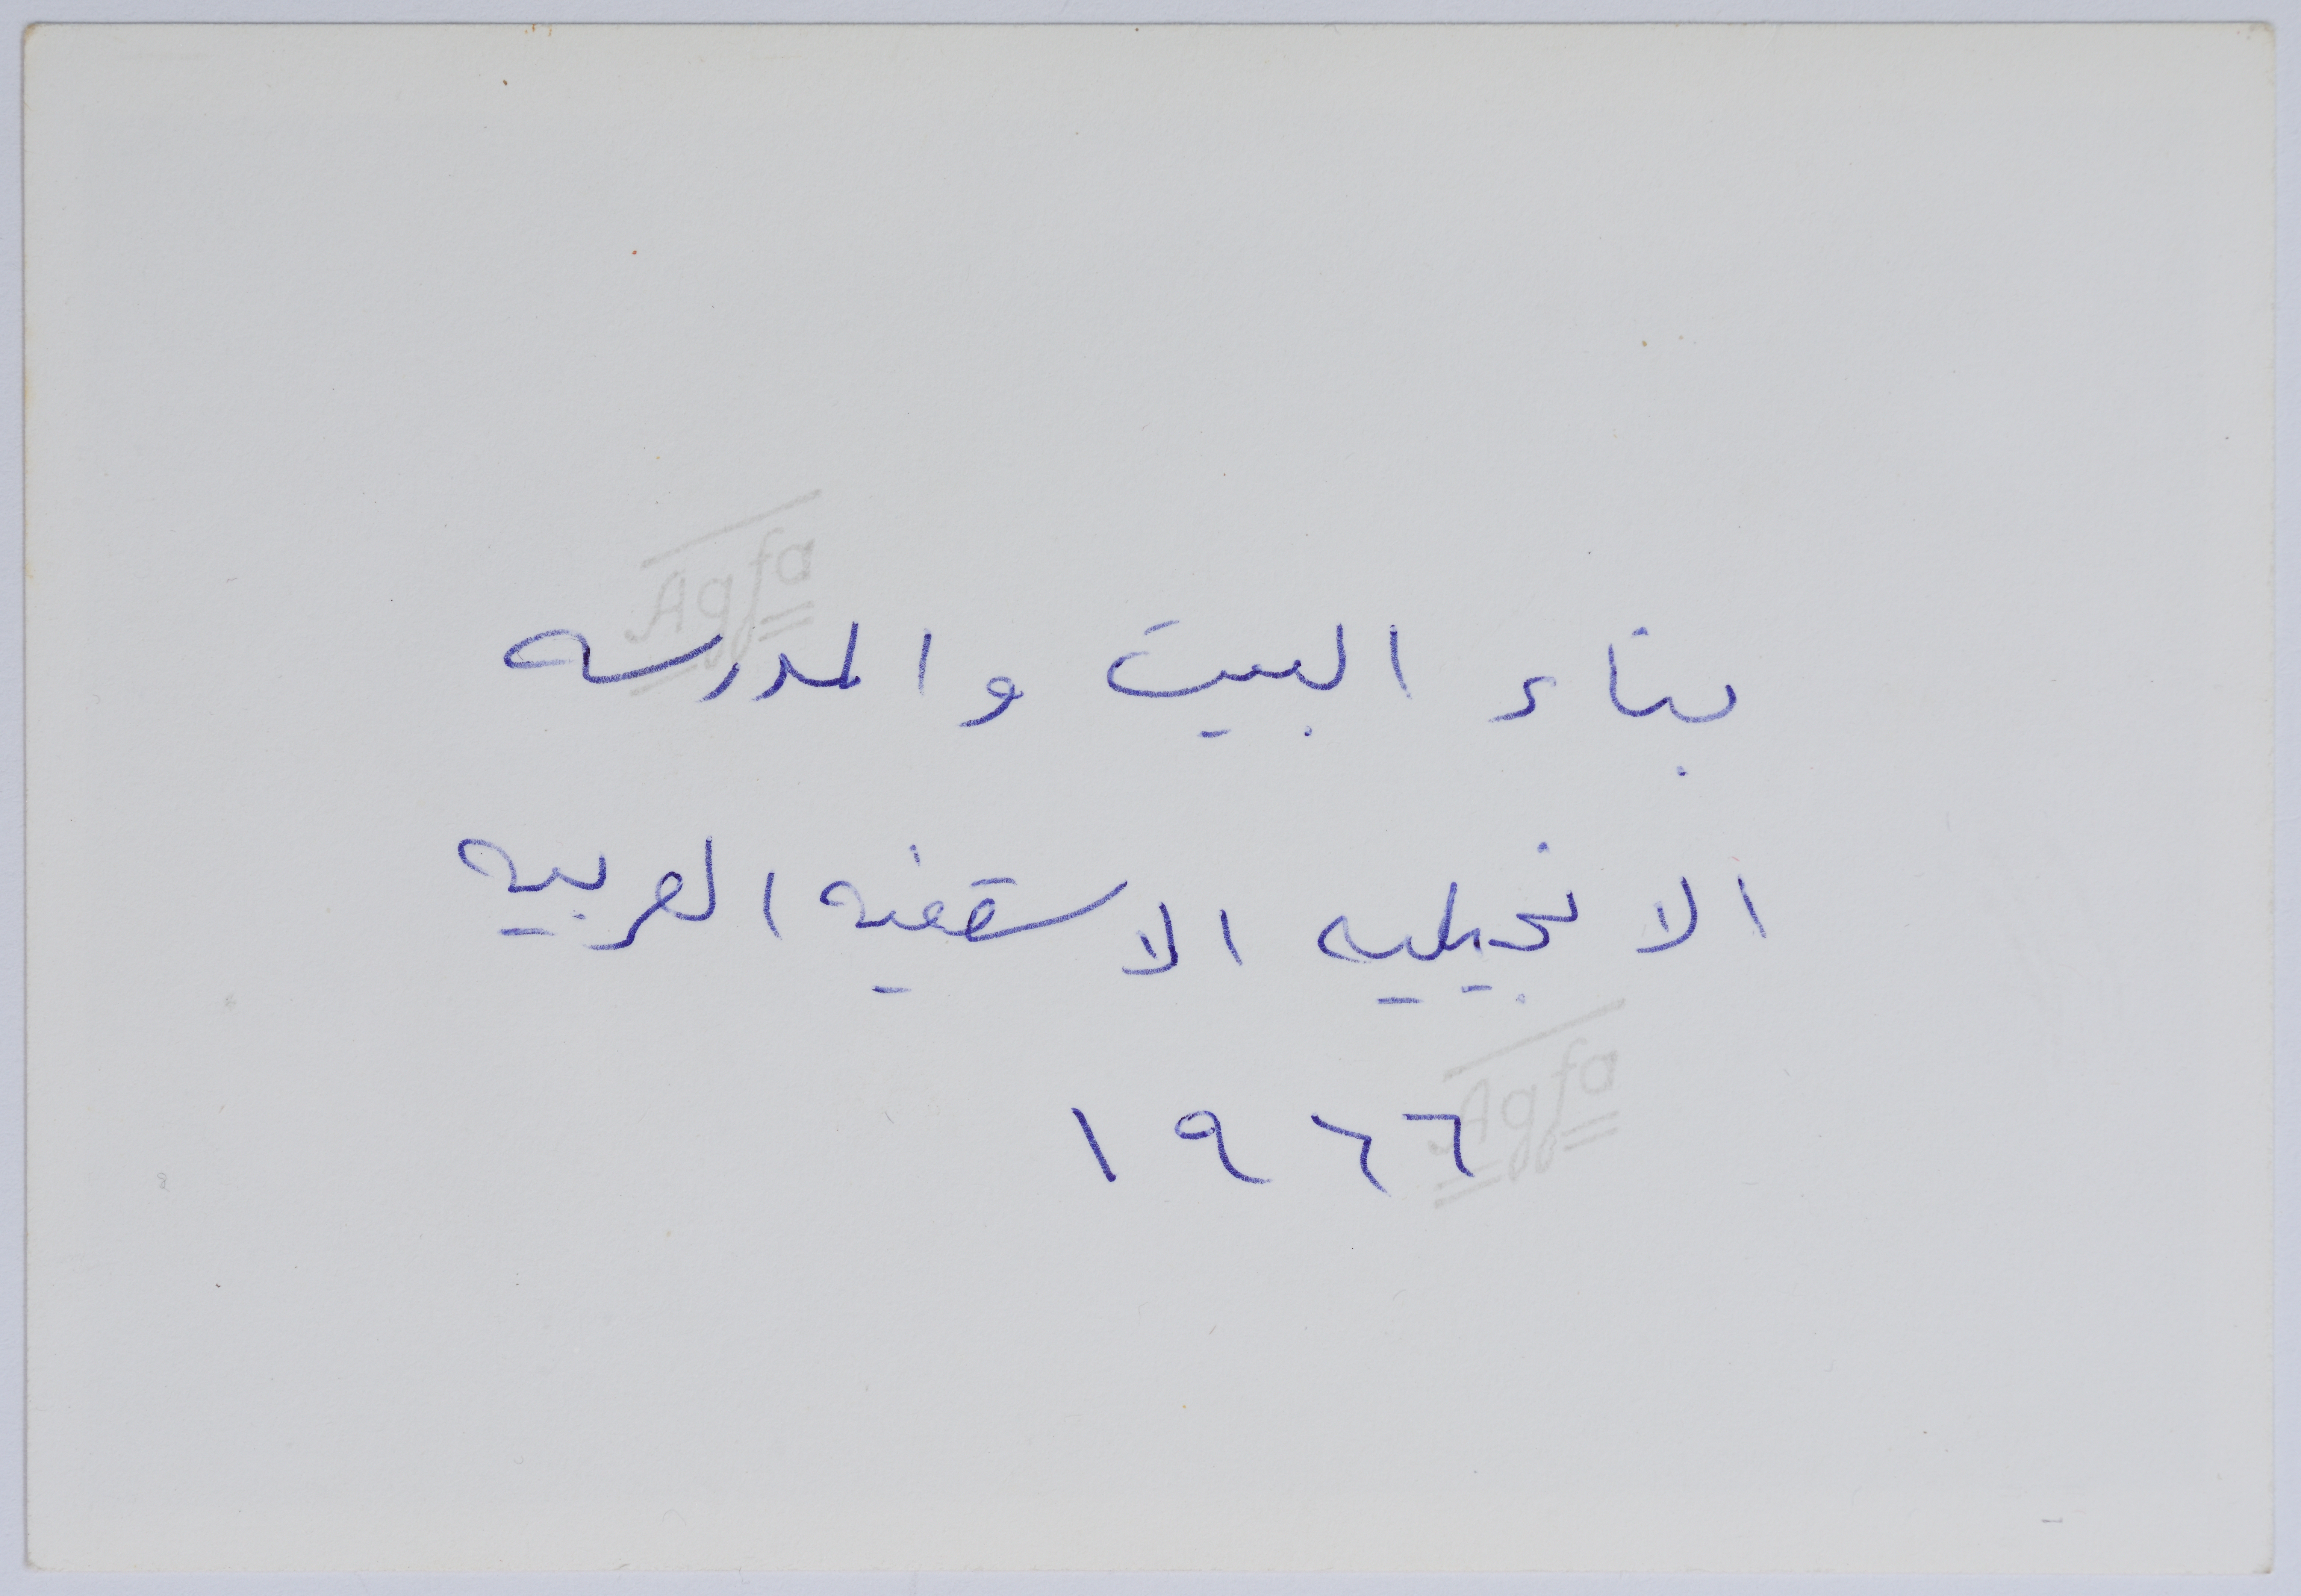 Agfa
بناء البيت والمدرسه
الانجيليه الاسقفيه العربيه
Agfa
١٩٦٦